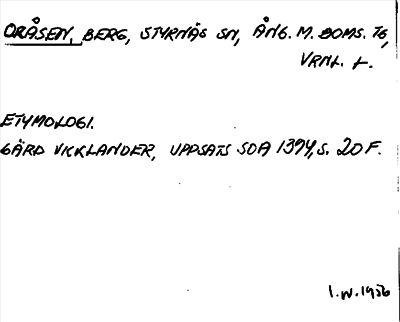 ORÅSEN, BERG, STYRNÄS SN, ÅNG. M. BOMS. TG,
VRNL. L.
ETYMOLOGI.
GÄRD VICKLANDER, UPPSATS SOA 1394, S. 20 F.
1.IV.1956